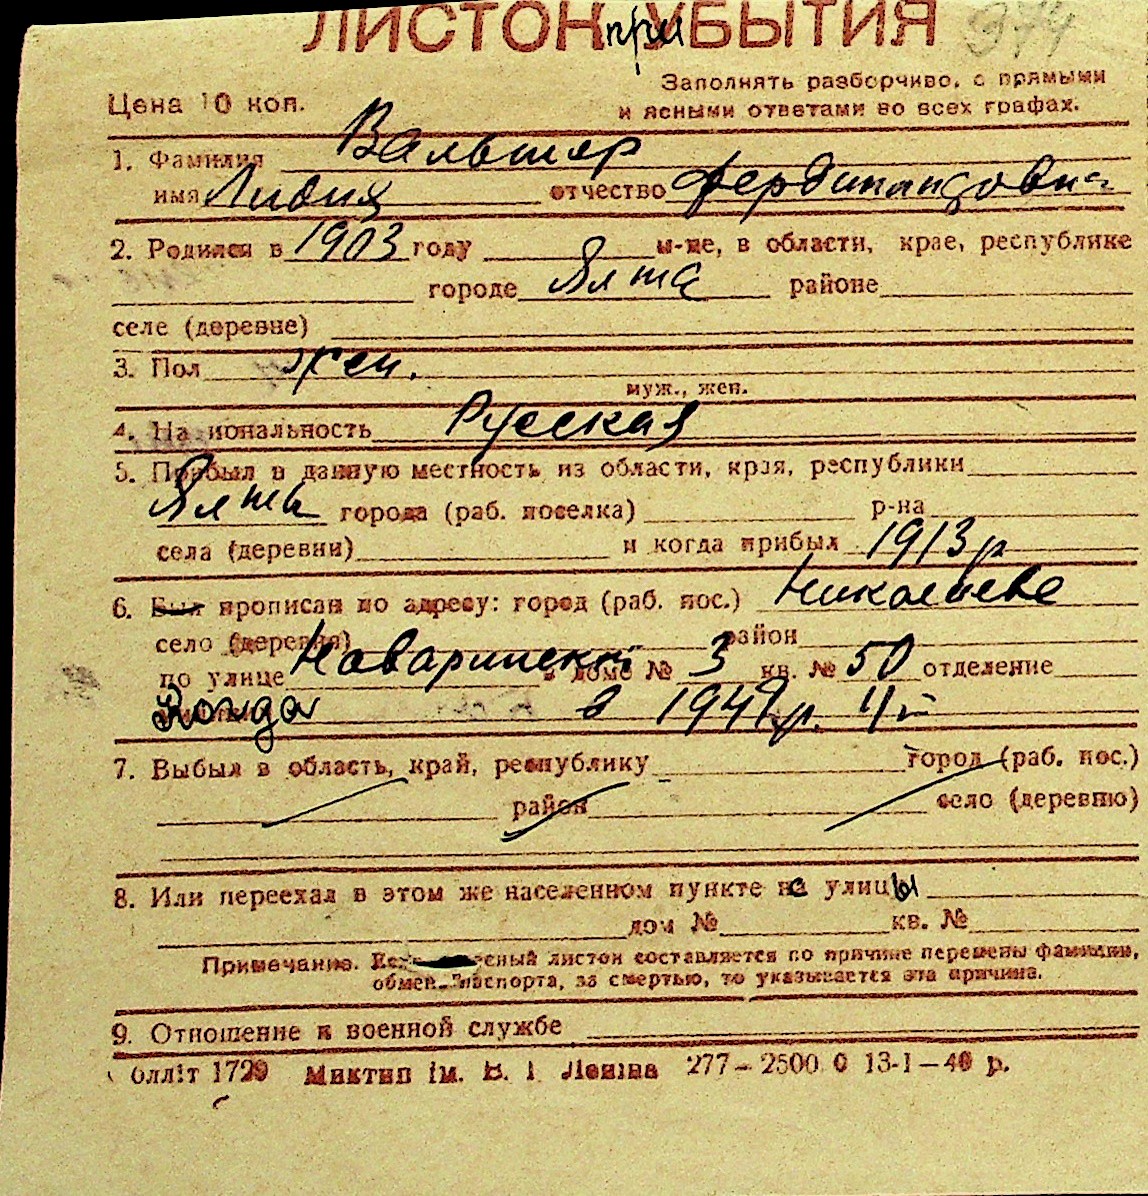 ЛИСТОК при УБЫТИЯ 374
Заполнять разборчиво, с прямыми
Цена 10 коп. и ясными ответами во всех графах.
1. Фамилия Вальтер
имя Лидия отчество Фердинандовна
2. Родился в 1903 году м-це, в области, крае, республике
городе Ялта районе
селе (деревне)
3. Пол жен.
муж., жен.
4. Национальность Русская
5. Прибыл в данную местность из области, края, республики
Ялта города (раб. поселка) р-на
села (деревни) и когда прибыл 1913 р
6. Был прописан по адресу: город (раб. пос.) Николаеве
село (деревня) район
по улице Наваринская в доме № 3 кв. № 50 отделение
Когда в 1942 р.
7. Выбыл в область, край, республику город (раб. пос.)
район село (деревню)
8. Или переехал в этом же населенном пункте не улицы
дом № кв. №
Примечание. Если листок составляется по причине перемены фамилии,
обмен. паспорта, за смертью, то указывается эта причина.
9. Отношение к военной службе
Оллiт 1729 Миктип iм. В. I Ленiна 277—2500 0 13-I—40 р.